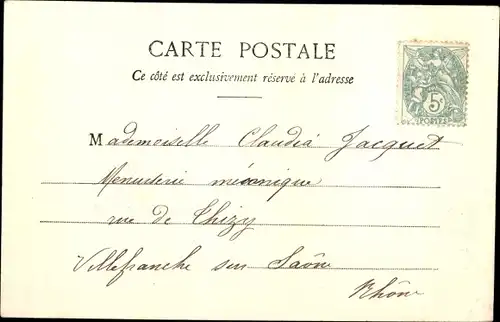 CARTE POSTALE
Ce côté est exclusivement réservé à l'adresse
5c
POSTES
Mademoiselle Claudia Jacquet
Menuiserie mécanique
rue de Thizy
Villefranche sur Saône
Rhône